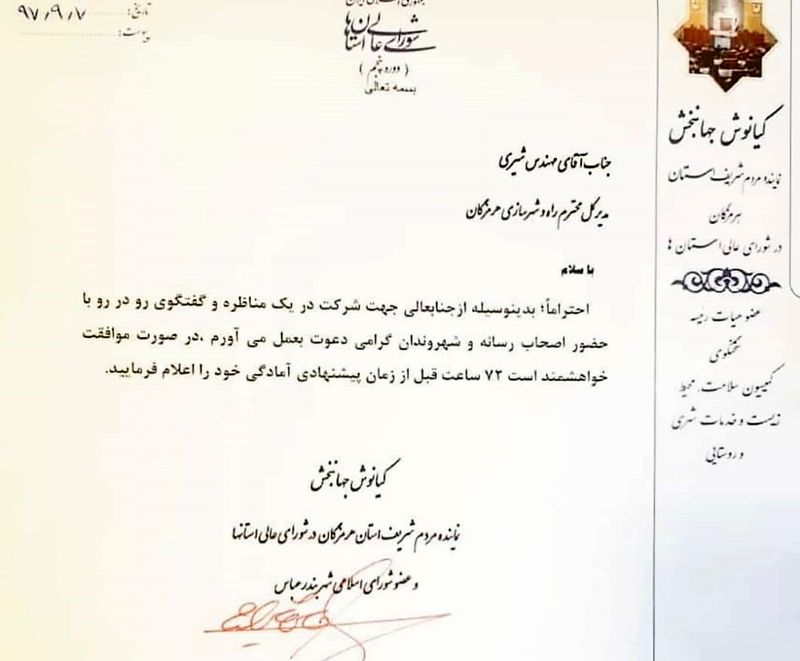 تاریخ: ۹۷/۹/۷
پیوست:
جمهوری اسلامی ایران
شورای عالی استان‌ها
( دوره پنجم )
بسمه تعالی
جناب آقای مهندس شیری
مدیر کل محترم راه و شهرسازی هرمزگان
با سلام
احتراماً؛ بدینوسیله از جنابعالی جهت شرکت در یک مناظره و گفتگوی رو در رو با
حضور اصحاب رسانه و شهروندان گرامی دعوت بعمل می آورم ،در صورت موافقت
خواهشمند است ۷۲ ساعت قبل از زمان پیشنهادی آمادگی خود را اعلام فرمایید.
کیانوش جهانبخش
نماینده مردم شریف استان هرمزگان در شورای عالی استانها
و عضو شورای اسلامی شهر بندرعباس
کیانوش جهانبخش
نماینده مردم شریف استان
هرمزگان
در شورای عالی استان ها
عضو هیات رئیسه
سخنگوی
کمیسیون سلامت، محیط
زیست و خدمات شهری
و روستایی